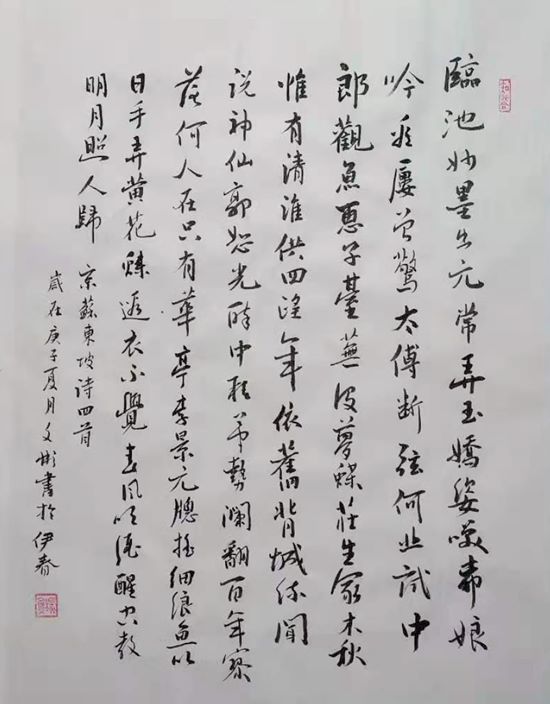 臨池妙墨出元常弄玉嬌姿笑柳娘
吟雪屢曾驚太傅斷弦何止試中
郎觀魚惠子臺蕪没夢蝶莊生冢木秋
惟有清淮供四望年依舊背城流聞
说神仙郭恕光醉中狂筆勢瀾翻百年寥
落何人在只有華亭李景元牕摇细浪魚吹
日手弄黄花蝶透衣不覺春風吹酒醒空教
明月照人歸
宋蘇東坡诗四首
歲在庚子夏月文彬書於伊春